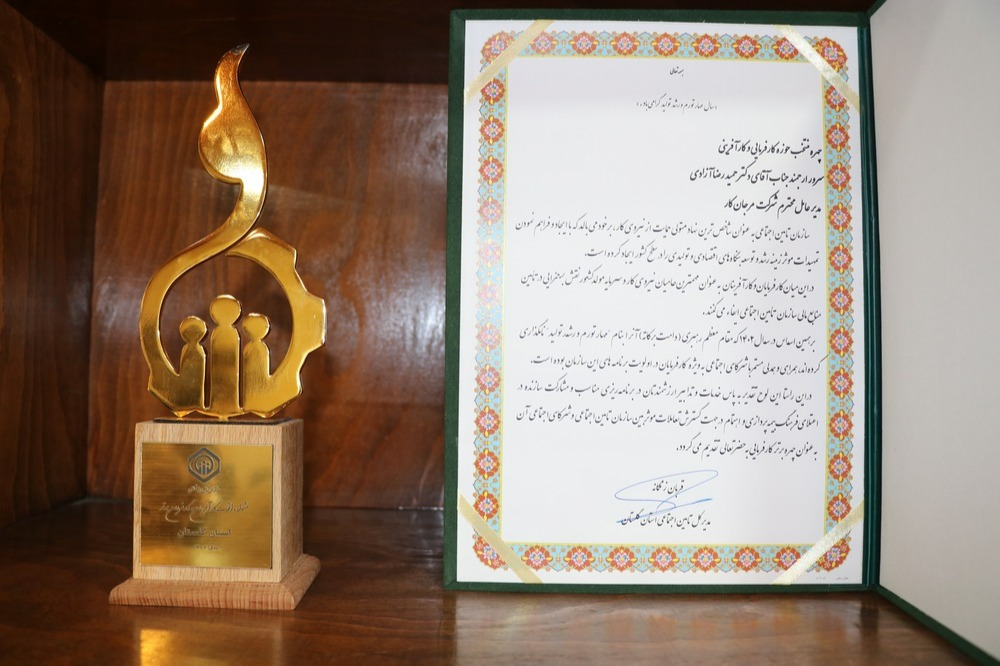 بسمه تعالی
«سال مهار تورم و رشد تولید گرامی باد.»
چهره منتخب حوزه کارفرمایی و کارآفرینی
سرور ارجمند جناب آقای دکتر حمیدرضا آزادی
مدیر عامل محترم شرکت مرجان کار
سازمان تامین اجتماعی به عنوان شاخص ترین نهاد متولی حمایت از نیروی کار، بر خود می بالد که با ایجاد و فراهم نمودن
تمهیدات موثر زمینه رشد و توسعه بنگاه های اقتصادی و تولیدی را در سطح کشور ایجاد کرده است.
در این میان کارفرمایان و کارآفرینان به عنوان مهمترین حامیان نیروی کار و سرمایه مولد کشور نقش بسزایی در تامین
منابع مالی سازمان تامین اجتماعی ایفاء می کنند.
بر همین اساس در سال ۱۴۰۲ که مقام معظم رهبری (دامت برکاته) آنرا بنام "مهار تورم و رشد تولید" نامگذاری
کرده اند، همراهی و همدلی مستمر با شرکای اجتماعی به ویژه کارفرمایان در اولویت برنامه های این سازمان بوده است.
در این راستا این لوح تقدیر به پاس خدمات و تدابیر ارزشمندتان در برنامه ریزی مناسب و مشارکت سازنده در
اعتلای فرهنگ بیمه پردازی و اهتمام در جهت گسترش تعاملات موثر بین سازمان تامین اجتماعی و شرکای اجتماعی آن
به عنوان چهره برتر کارفرمایی به حضرتعالی تقدیم می گردد.
قربان زنگانه
مدیر کل تامین اجتماعی استان گلستان
استان گلستان